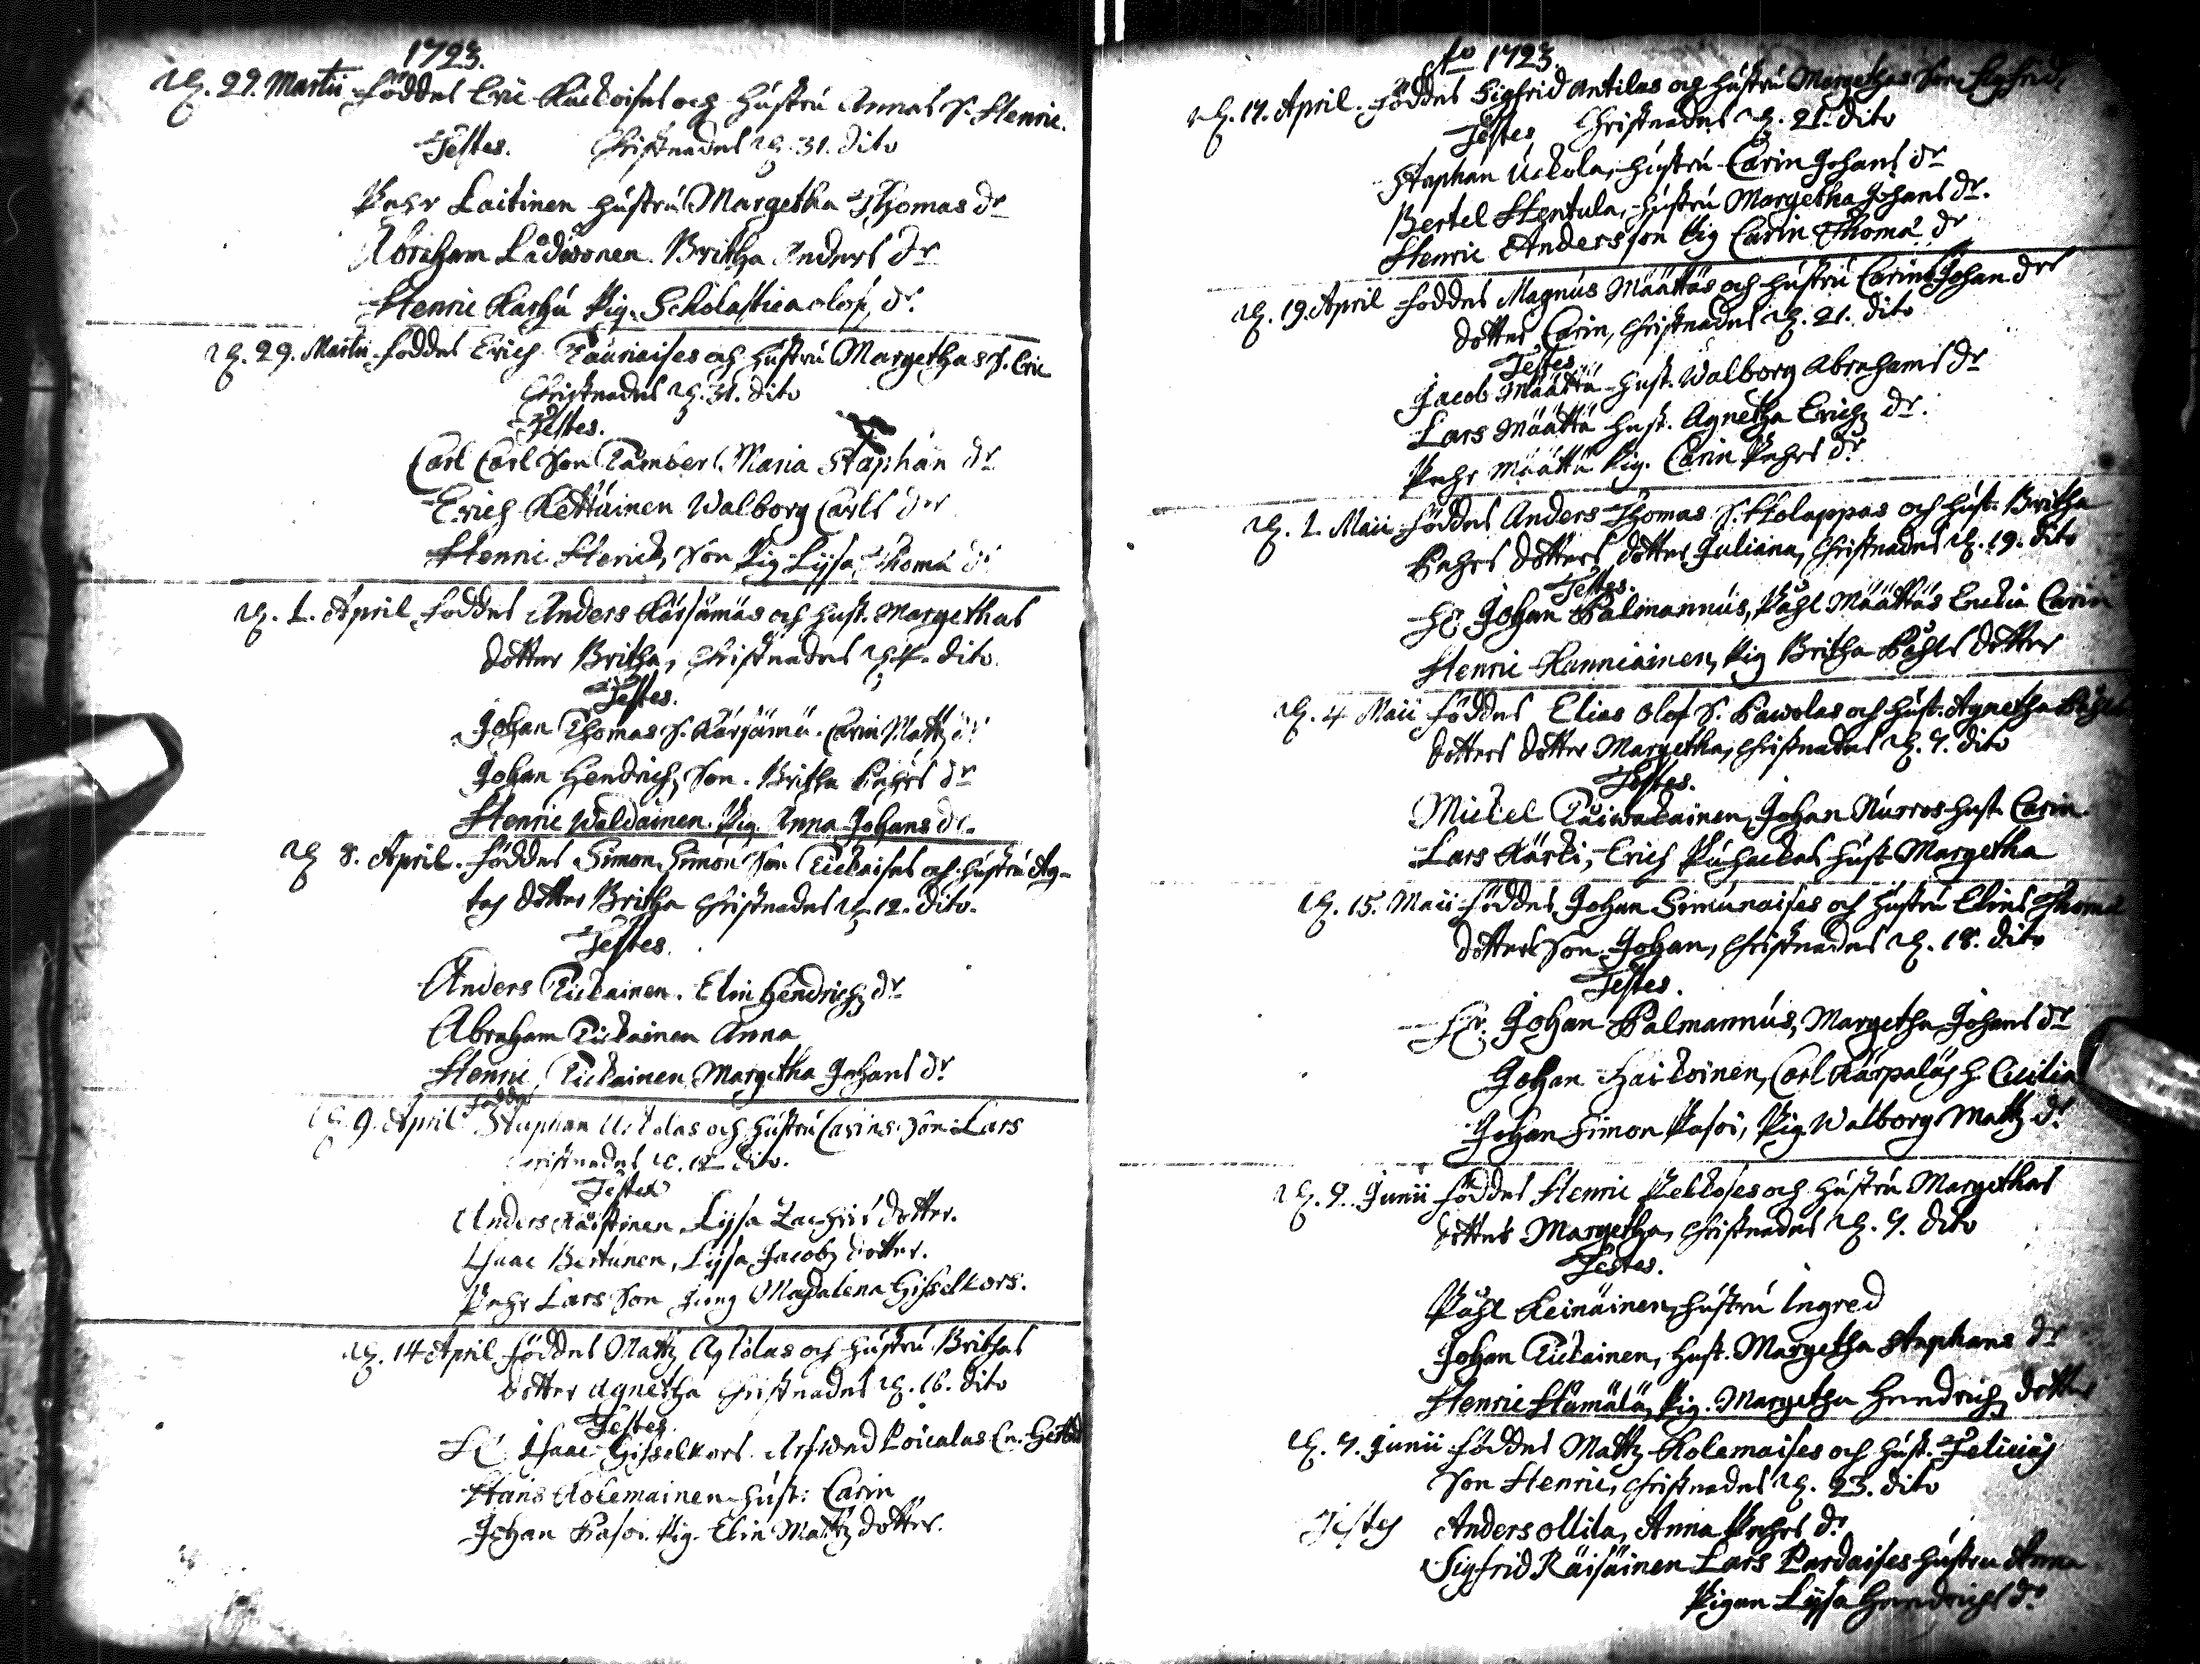 1723.
D. 29. Martii föddes Eric Kuckoises och hústrú Annas S. Henric.
Testes. Christnades D. 31. dito
Pehr Laitinen hústrú Margetha Thomas dr
Abraham Lådwonen. Britha Anders dr
Henric Karhú Pig. Scholastica olofs dr.
D. 29. Martii föddes Erich Tauriaises och hústrú Margethas S. Eric
Christnades D. 31. dito
Testes.
Carl Carl Son Tamber. Maria Staphan dr
Erich Kettúinen Walborg Carls dr
Henric Henrichs Son Pig Lijsa Thoma dr
D. 1. April föddes Anders Kärsämäs och hust. Margethas
dotter Britha, Christnades D. 4. dito.
Testes.
Johan Thomas S. Kärsämä. Carin Mattz dr
Johan Hendrichz Son. Britha Pehrs dr
Henric Waldainen. Pig. Anna Johans dr.
D. 8. April. föddes Simon Simon Son Tickaises och hústrú Ag-
tas dotter Britha Christnades D. 12. dito.
Testes.
Anders Tickainen. Elin Hendrichz dr
Abraham Tickainen Anna
Henric Tickainen Margetha Johans dr.
D. 9. April föddes Staphan Uckolas och hústrú Carins Son Lars
Christnades D. dito.
Testes
Anders Lijsa Zachris dotter.
Isaac Bertúnen, Lijsa Jacobz dotter.
Pehr Lars Son Jung Magdalena Gisselkors.
D. 14 April föddes Mattz och hústrú Brithas
dotter Agnetha Christnades D. 16. dito
Testes.
Hr Isaac Gisselkors. Arfwed
Hans Kolemainen húst: Carin
Johan Pasoi. Pig. Elin Mattz dotter.
Ao 1723.
D. 17. April. föddes Sigfrid Antilas och hústrú Margethas Son Sigfrid.
Testes Christnades D. 21. dito
Staphan Uckola, hústrú Carin Johans dr
Bertel Hentula, hústrú Margetha Johans dr.
Henric Andersson Pig Carin Thoma dr
D. 19. April föddes Magnús Määttäs och hústrú Carins Johan drs
dotter Carin, Christnades D. 21. dito
Testes
Jacob Määttä húst. Walborg Abrahams dr
Lars Määttä húst. Agnetha Erichz dr.
Pehr Määttä Pig. Carin Pehrs dr
D. 1. Maii föddes Anders Thomas S. Holappas och húst. Britha
Pehrs dotters dotter Juliana, Christnades D. 19. dito
Testes.
Hr Johan Palmannús, Påhl Määttäs Enckia Carin
Henric Kanniainen, Pig Britha Påhls dotter
D. 4 Maii föddes Elias Olof S. Pawolas och húst. Agnetha Påhls
dotters dotter Margetha, Christnades D. 7. dito
Testes.
Mickel Taiwalainen, Johan Núrros húst. Carin.
Lars Kärki, Erich Púhackas húst Margetha
D. 15. Maii föddes Johan Simúnaises och hústrú Elins Thoma
dotters Son Johan, Christnades D. 18. dito
Testes.
Hr. Johan Palmannús, Margetha Johans dr
Johan Haikoinen, Carl Karpalas h. Cicilia
Johan Simon Pasoi, Pig. Walborg Mattz dr
D. 2. Junii föddes Henric Pekkoses och hústrú Margethas
dotter Margetha, Christnades D. 7. dito
Testes.
Påhl Keinäinen, hústrú Ingred
Johan Tickainen, húst. Margetha Staphans dr
Henric Hämälä, Pig. Margetha Hendrichz dotter
D. 7. Junii föddes Mattz Kolemaises och húst. Felicias
Son Henric, Christnades D. 23. dito
Testes Anders Ollila, Anna Pehrs dr
Sigfrid Räisäinen Lars Pardaises hústru Anna
Pigan Lijsa Hendrichs dr